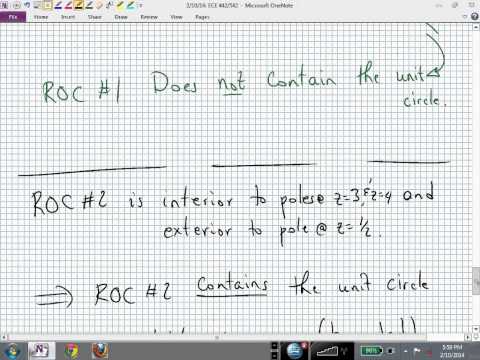 2/10/14: ECE 442/542 - Microsoft OneNote
File Home Insert Share Draw Review View
ROC #1 Does not contain the unit
circle.
ROC #2 is interior to poles @ z=3, & z=4 and
exterior to pole @ z=1/2.
⇒ ROC #2 contains the unit circle
96%
5:59 PM
2/10/2014